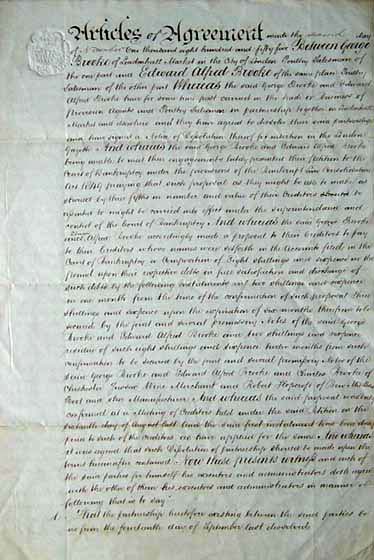 Articles of Agreement made the second day
of November One thousand eight hundred and fifty five Between George
Brooke of Leadenhall Market in the City of London Poultry Salesman of
the one part and Edward Alfred Brooke of the same place Poultry
Salesman of the other part Whereas the said George Brooke and Edward
Alfred Brooke have for some time past carried on the trade or business of
Provision Agents and Poultry Salesmen in partnership together in Leadenhall
Market and elsewhere and they have agreed to dissolve their said partnership
and have signed a Notice of Dissolution thereof for insertion in the London
Gazette And whereas the said George Brooke and Edward Alfred Brooke
being unable to meet their engagements lately presented their petition to the
Court of Bankruptcy under the provisions of the Bankrupt Law Consolidation
Act 1849 praying that such proposal as they might be able to make as
assented by three fifths in number and value of their Creditors
might be carried into effect under the superintendence and
control of the Court of Bankruptcy And whereas the said George Brooke
and Edward Alfred Brooke accordingly made a proposal to their Creditors to pay
to their Creditors whose names were set forth in the Accounts filed in the
Court of Bankruptcy a Composition of Eight shillings and sixpence in the
pound upon their respective debts in full satisfaction and discharge of
such debts by the following instalments viz two shillings and sixpence
in one month from the time of the confirmation of such proposal three
shillings and sixpence upon the expiration of six months therefrom to be
secured by the joint and several promissory Notes of the said George
Brooke and Edward Alfred Brooke and two shillings and sixpence
residue of such eight shillings and sixpence twelve months from such
confirmation to be secured by the joint and several promissory Notes of the
said George Brooke and Edward Alfred Brooke and Charles Brooke of
Chichester Merchant and Robert of
Boot and Shoe Manufacturer And whereas the said proposal was
confirmed at a Meeting of Creditors held under the said Petition on the
day of August last and the said first instalment have been
paid to such of the Creditors as have applied for the same And whereas
it was agreed that such Dissolution of partnership should be made upon the
terms hereinafter contained Now these presents witness and each of
the said parties for himself his executors and administrators doth agree
with the other of them his executors and administrators in manner
following that is to say
1. That the partnership heretofore existing between the said parties be
as from the fourteenth day of September last dissolved